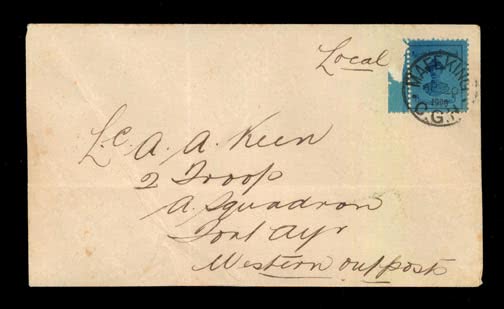 Local
MAFEKING
1900
C.G.H.
L.C. A. A. Keen
2 Troop
A. Squadron
Fort Ayr
Western outposts